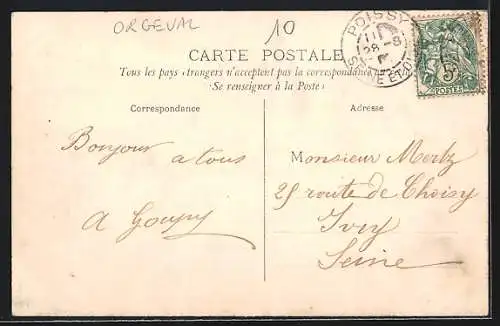 ORGEVAL
10
POISSY
11
28 -8
SEINE ET OI
5c
POSTES
CARTE POSTALE
Tous les pays étrangers n'acceptent pas la correspondance
(Se renseigner à la Poste)
Correspondance
Adresse
Bonjour a tous
A Goupy
Monsieur Mertz
25 route de Choisy
Ivry
Seine